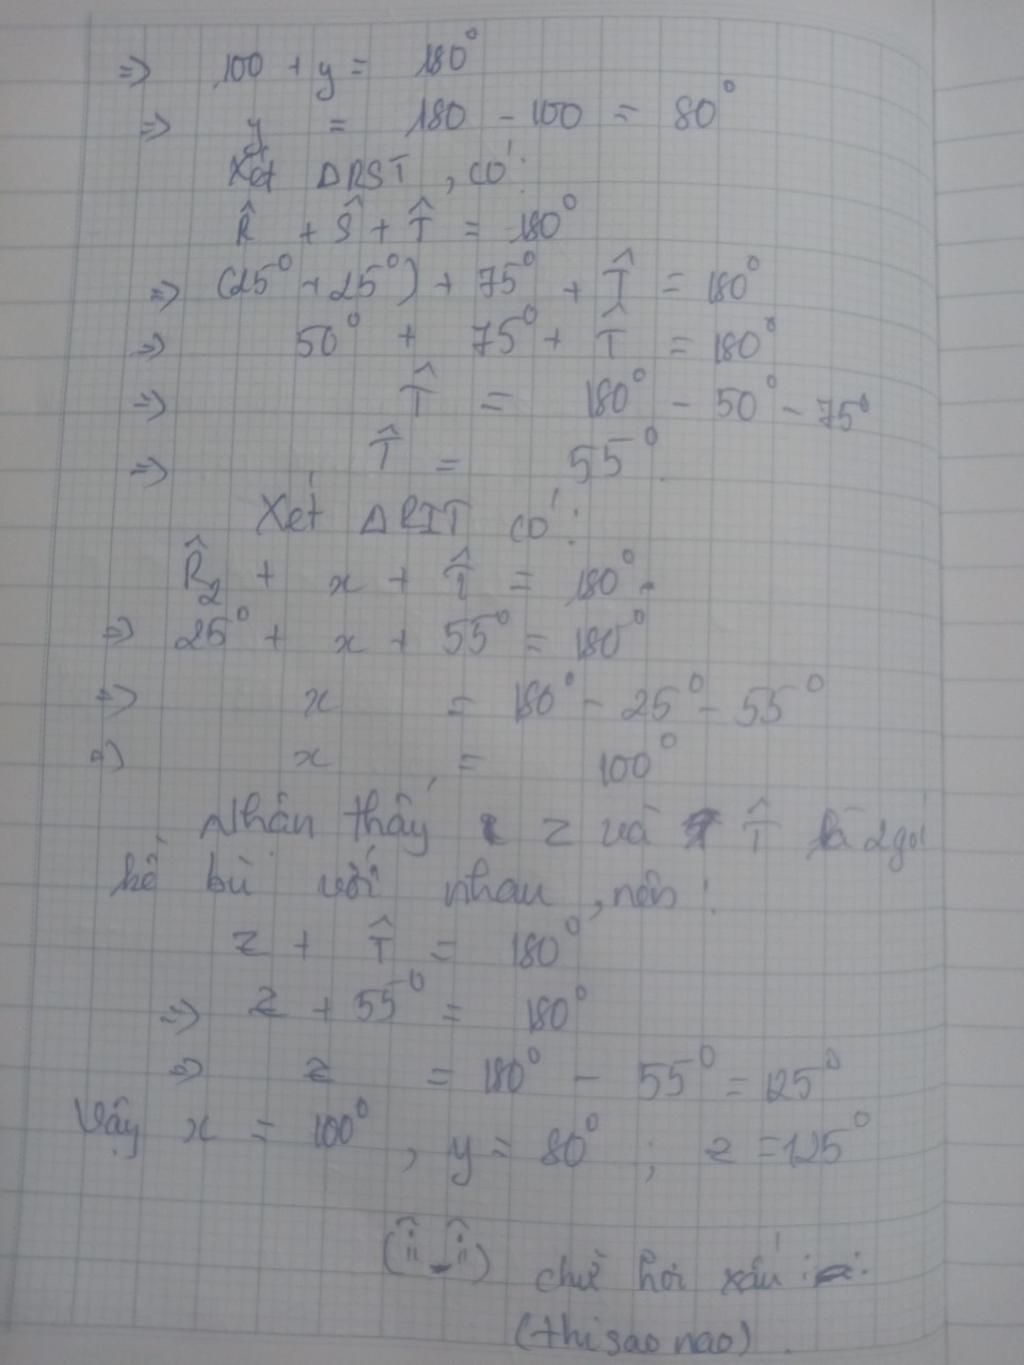 => 100 + y = 180°
=> y = 180 - 100 = 80°
Xét ΔRST, có:
R̂ + Ŝ + T̂ = 180°
=> (25° + 25°) + 75° + T̂ = 180°
=> 50° + 75° + T̂ = 180°
=> T̂ = 180° - 50° - 75°
=> T̂ = 55°.
Xét ΔRIT có:
R̂₂ + x + T̂ = 180°.
=> 25° + x + 55° = 180°
=> x = 180° - 25° - 55°
=> x = 100°
Nhận thấy z và T̂ là 2 gó
kề bù với nhau, nên:
z + T̂ = 180°
=> z + 55° = 180°
=> z = 180° - 55° = 125°
Vậy x = 100°, y = 80°; z = 125°
chữ hơi xấu
(thì sao nào)